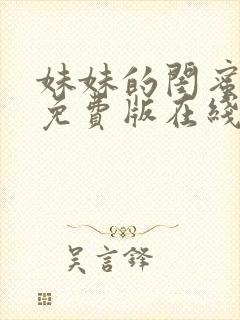 妹妹的閨蜜
免費版在綫
吴言鋒